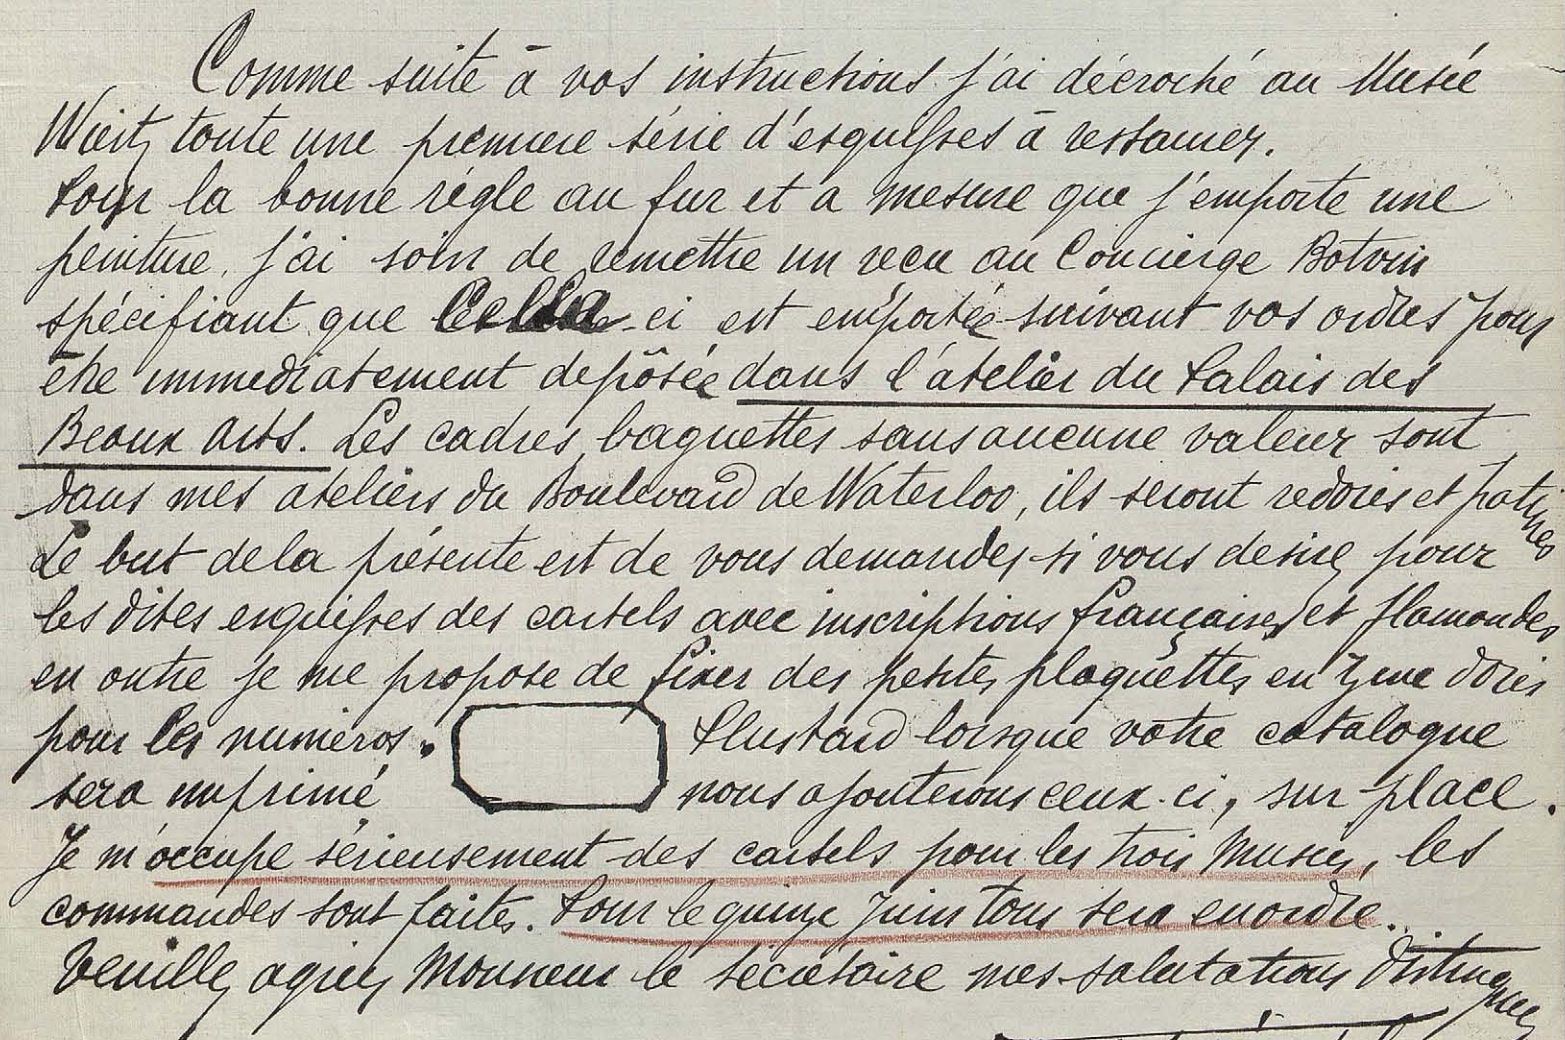 Comme suite à vos instructions j'ai décroché au Musée
Wiertz toute une premiere série d'esquisses à restaurer.
Pour la bonne règle au fur et a mesure que j'emporte une
peinture, j'ai soin de remettre un recu au Concierge Botvin
spécifiant que Celle-ci est emportée suivant vos ordres pour
être immediatement depôsée dans l'atelier du Palais des
Beaux Arts. Les cadres baguettes sans aucune valeur sont
dans mes ateliers du Boulevard de Waterloo, ils seront redorés et patines
Le but de la présente est de vous demander si vous desirez pour
les dites esquisses des cartels avec inscriptions françaises et flamandes
en outre je me propose de fixer des petites plaquettes en zinc dorés
pour les numéros. Plustard lorsque votre catalogue
sera imprimé nous ajouterons ceux-ci, sur place.
Je m'occupe sérieusement des cartels pour les trois Musées, les
commandes sont faites. Pour le quinze Juin tous sera en ordre.
Veuillez agréez Monsieur le secrétaire mes salutations distinguées